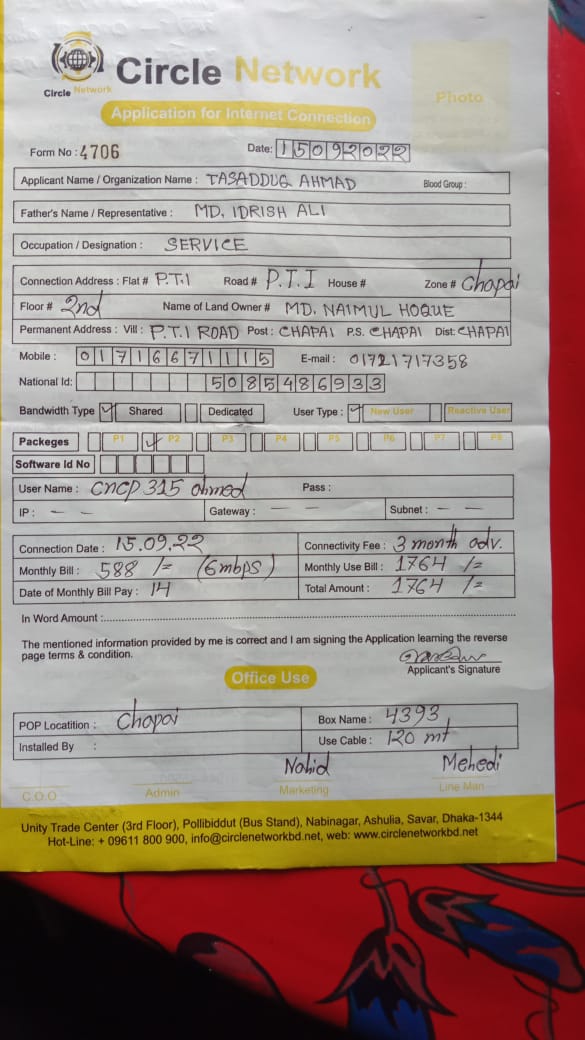 Circle Network
Circle Network
Application for Internet Connection
Photo
Form No : 4706
Date: 15092022
Applicant Name / Organization Name : TASADDUG AHMAD Blood Group :
Father's Name / Representative : MD. IDRISH ALI
Occupation / Designation : SERVICE
Connection Address : Flat # P.T.I Road # P.T.I House # Zone # Chapai
Floor # 2nd Name of Land Owner # MD. NAIMUL HOQUE
Permanent Address : Vill : P.T.I ROAD Post : CHAPAI P.S. CHAPAI Dist: CHAPAI
Mobile : 01716671115 E-mail : 01721717358
National Id: 5085486933
Bandwidth Type ✓ Shared Dedicated User Type : ✓ New User Reactive User
Packeges P1 ✓ P2 P3 P4 P5 P6 P7 P8
Software Id No
User Name : cncp 315 ahmed Pass :
IP : — — Gateway : — — Subnet : — —
Connection Date : 15.09.22 Connectivity Fee : 3 month adv.
Monthly Bill : 588 /= (6mbps) Monthly Use Bill : 1764 /=
Date of Monthly Bill Pay : 14 Total Amount : 1764 /=
In Word Amount :
The mentioned information provided by me is correct and I am signing the Application learning the reverse
page terms & condition.
Applicant's Signature
Office Use
POP Locatition : Chapai Box Name : 4393
Installed By : Use Cable : 120 mt
Nahid Mehedi
C.O.O Admin Marketing Line Man
Unity Trade Center (3rd Floor), Pollibiddut (Bus Stand), Nabinagar, Ashulia, Savar, Dhaka-1344
Hot-Line: + 09611 800 900, info@circlenetworkbd.net, web: www.circlenetworkbd.net